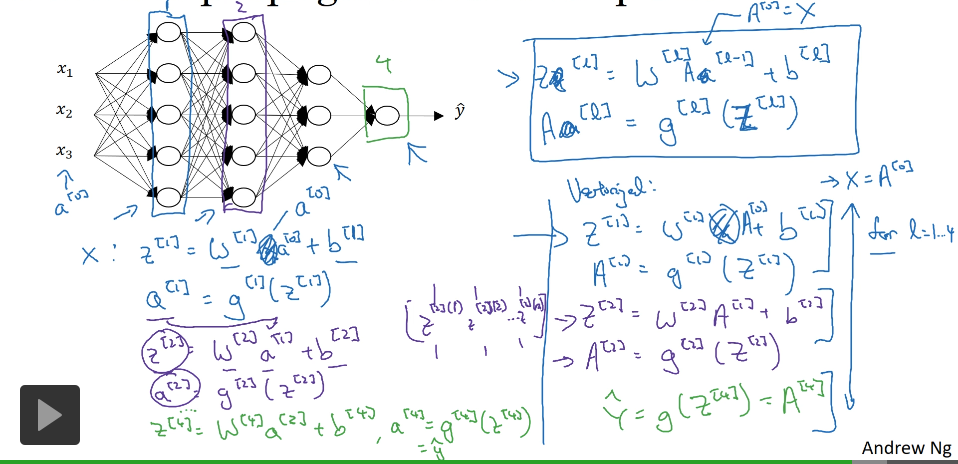 1 2
x₁
x₂
x₃
a^[0]
4
ŷ
a^[0]
X : z^[1] = W^[1] a^[0] + b^[1]
a^[1] = g^[1](z^[1])
z^[2] = W^[2] a^[1] + b^[2]
a^[2] = g^[2](z^[2])
z^[4] = W^[4] a^[3] + b^[4], a^[4] = g^[4](z^[4])
= ŷ
A^[0] = X
→ Z^[l] = W^[l] A^[l-1] + b^[l]
A^[l] = g^[l](Z^[l])
Vectorized:
→ X = A^[0]
Z^[1] = W^[1] A^[0] + b^[1]
A^[1] = g^[1](Z^[1])
for l=1..4
[z^[2](1) z^[2](2) ... z^[2](m)]
→ Z^[2] = W^[2] A^[1] + b^[2]
→ A^[2] = g^[2](Z^[2])
Ŷ = g(Z^[4]) = A^[4]
Andrew Ng